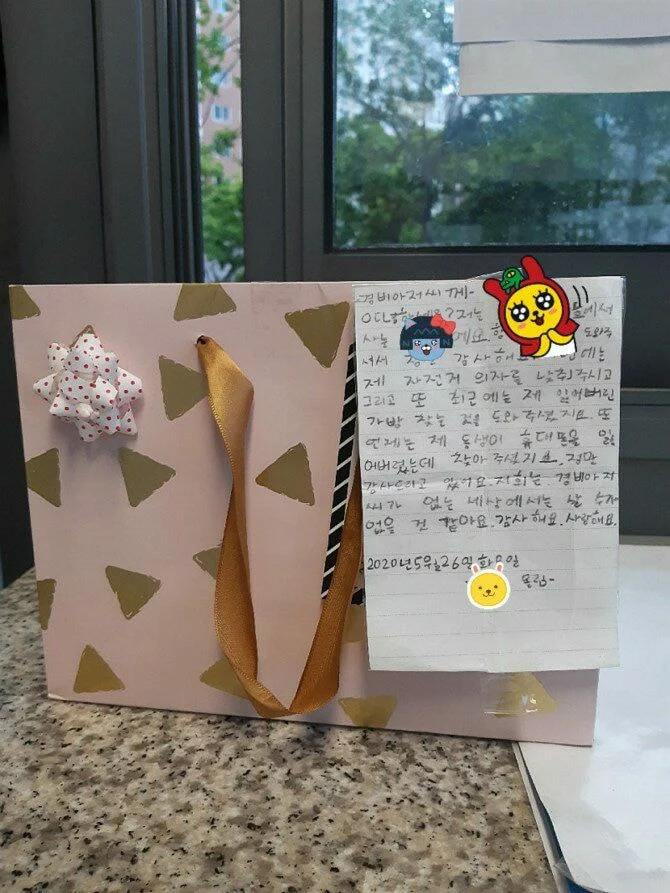 경비아저씨께-
안녕하세요? 저는 에서
사는 게요. 항 도와주
셔서 감사해 에는
제 자전거 의자를 낮춰주시고
그리고 또 최근에는 제 잃어버린
가방 찾는 것을 도와주셨지요. 또
언제는 제 동생이 휴대폰을 잃
어버렸는데 찾아주셨지요. 정말
감사드리고 있어요. 저희는 경비아저
씨가 없는 세상에서는 살 수가
없을 것 같아요. 감사해요. 사랑해요.
2020년5월26일화요일
올림-